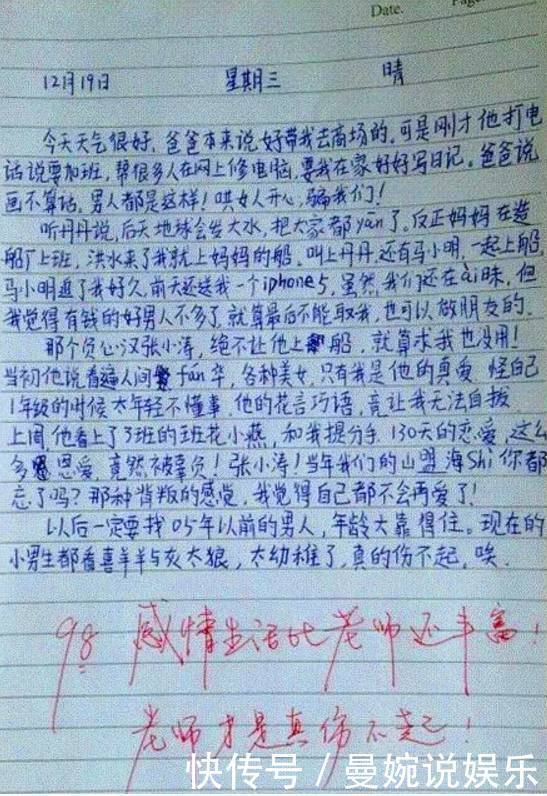 Date.
12月19日 星期三 晴
今天天气很好，爸爸本来说好带我去商场的。可是刚才他打电
话说要加班，帮很多人在网上修电脑，要我在家好好写日记。爸爸说
画不算话，男人都是这样！哄女人开心，骗我们！
听丹丹说，后天地球会发大水，把大家都yān了。反正妈妈在造
船厂上班，洪水来了我就上妈妈的船。叫上丹丹，还有马小明，一起上船，
马小明追了我好久，前天还送我一个iphone5，虽然我们还在ài昧，但
我觉得有钱的好男人不多了，就算最后不能取我，也可以做朋友的。
那个负心汉张小涛，绝不让他上船，就算求我也没用！
当初他说看遍人间fán华，各种美女，只有我是他的真爱。怪自己
1年级的时候太年轻不懂事，他的花言巧语，竟让我无法自拔
上周他看上了3班的班花小燕，和我提分手，130天的恋爱，这么
多恩爱，竟然被辜负！张小涛！当年我们的山盟海Shi你都
忘了吗？那种背叛的感觉，我觉得自己都不会再爱了！
以后一定要找05年以前的男人，年龄大靠得住。现在的
小男生都看喜羊羊与灰太狼，太幼稚了，真的伤不起，唉。
98 感情生活比老师还丰富！
老师才是真伤不起！
快传号 / 曼婉说娱乐